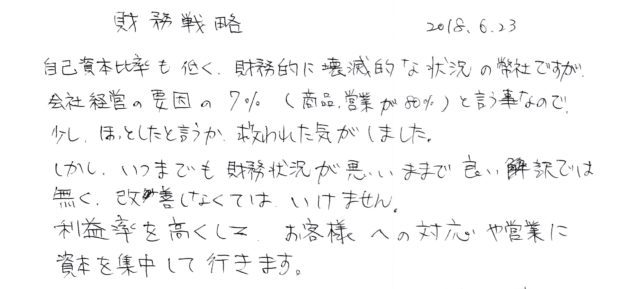 財務戦略 2018.6.23
自己資本比率も低く、財務的に壊滅的な状況の弊社ですが、
会社経営の要因の7%(商品、営業が80%)と言う事なので、
少し、ほっとしたと言うか、救われた気がしました。
しかし、いつまでも財務状況が悪いままで良い解訳では
無く、改善しなくてはいけません。
利益率を高くして、お客様への対応や営業に
資本を集中して行きます。